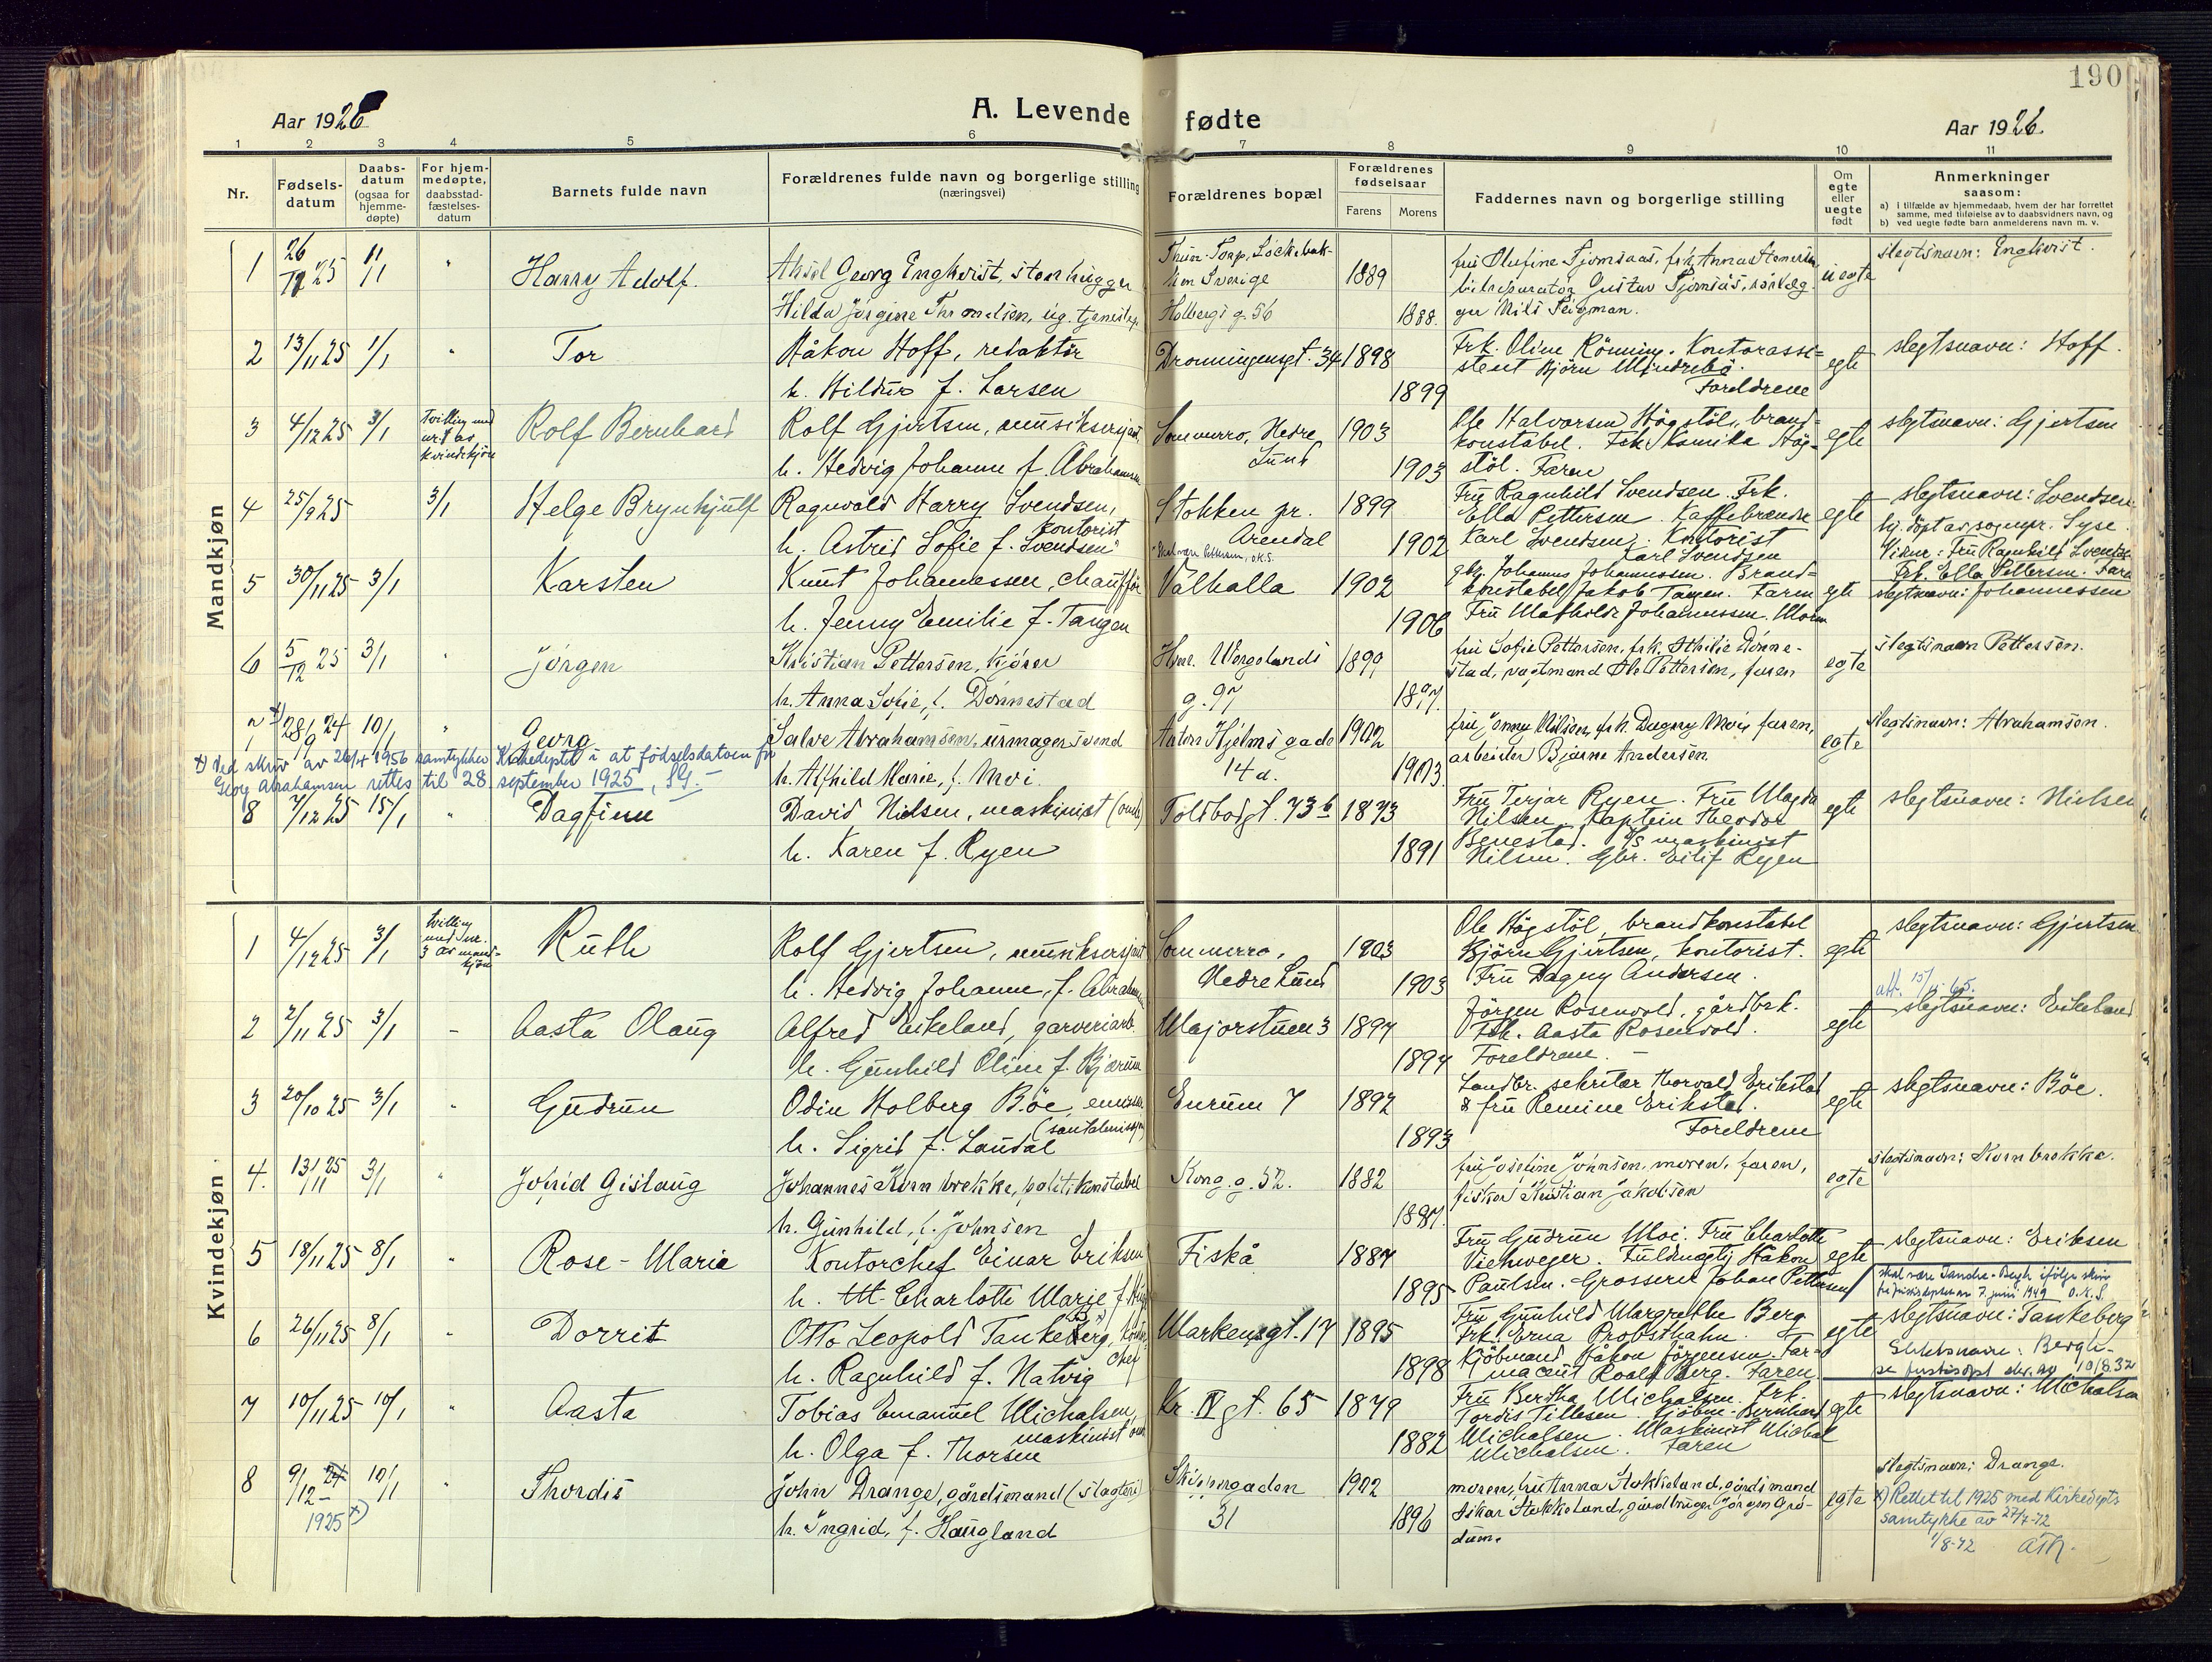 190
Aar 1926
A. Levende fødte
Aar 1926.
1 2 3 4 5 6 7 8 9 10 11
Nr.
Fødsels-
datum
Daabs-
datum
(ogsaa for
hjemme-
døpte)
For hjem-
medøpte,
daabsstad-
fæstelses-
datum
Barnets fulde navn
Forældrenes fulde navn og borgerlige stilling
(næringsvei)
Forældrenes bopæl
Forældrenes
fødselsaar
Farens Morens
Faddernes navn og borgerlige stilling
Om
egte
eller
uegte
født
Anmerkninger
saasom:
a) i tilfælde av hjemmedaab, hvem der har forrettet
samme, med tilføielse av to daabsvidners navn, og
b) ved uegte fødte barn anmelderens navn m. v.
Mandkjøn
1 26/12 25 1/1 " Harry Adolf. Aksel Georg Engkvist, stenhugger 1889 uegte slegtsnavn: Engkvist.
Hilda Jørgine Thomdsen, ug. tjenestep. Holbergs g. 56 1888.
2 13/11 25 1/1 " Tor Håkon Hoff, redaktör Dronningensgt. 34 1898 Frk. Oline Rönning. Kontorasse=
stent Björn Mindrebö. egte slegtsnavn: Hoff.
h. Hildur f. Larsen 1899 Foreldrene
3 4/12 25 3/1 Tvilling med
nr 1 av
kvindekjön Rolf Bernhard Rolf Gjertsen, musiksersjant Sommerro, Nedre
Lund 1903 Ole Halvorsen Högstöl, brand=
konstabel. Frk. Kamilla Hög=
stöl. Faren egte slegtsnavn: Gjertsen
h. Hedvig Johanne f. Abrahamsen 1903
4 25/9 25 3/1 Helge Brynhjulf Ragnvald Harry Svendsen,
kontorist Stokken pr.
Arendal 1899 Fru Ragnhild Svendsen. Frk.
Ella Pettersen. Kaffebrender
Karl Svendsen. Kontorist
Karl Svendsen egte slegtsnavn: Svendsen.
hj. döpt av sognepr. Syse.
Vidner: Fru Ragnhild Svendsen
Frk. Ella Pettersen. Faren
h. Astrid Sofie f. Svendsen" "Skal være Pettersen, O.K.S. 1902
5 30/11 25 3/1 Karsten Knut Johannessen, chauffør Valhalla 1902 gbr. Johannes Johannessen. Brand=
konstabel Jakob Tangen. Faren
Fru Mathilde Johannessen. Moren egte slegtsnavn: Johannessen
h. Jenny Emilie f. Tangen 1906
6 5/12 25 3/1 " Jörgen Kristian Pettersen, kjörer Henr. Wergelands
g. 97 1899 fru Sofie Pettersen, frk. Othilie Dönne-
stad, vagtmand Ole Pettersen, faren egte slegtsnavn Pettersen.
h. Anna Sofie, f. Dönnestad 1897.
7 x) 28/9 24 10/1 " Georg Salve Abrahamsen, urmagersvend Anton Hjelms gade
14 a. 1902 fru Jenny Nilsen, frk. Dagny Moi, faren,
arbeider Bjarne Andersen egte slegtsnavn: Abrahamsen.
h. Alfhild Marie, f. Moi. 1903.
x) Ved skriv av 26/4 1956 samtykker Kirkedeptet i at fødselsdatoen for
Georg Abrahamsen rettes til 28. september 1925, SG.-
8 7/12 25 15/1 " Dagfinn David Nielsen, maskinist Toldbodgt. 73 b 1873 Fru Terjar Ryen. Fru Magda
Nilsen. Kaptein Theodor
Benestad. maskinist
Nilsen. Gbr. Eilif Ryen egte slegtsnavn: Nielsen
h. Karen f. Ryen 1891
Kvindekjøn
1 4/12 25 3/1 Tvilling
med nr.
3 av mand=
kjön Ruth Rolf Gjertsen, musiksersjant Sommerro,
Nedre Lund 1903 Ole Högstöl, brandkonstabel
Björn Gjertsen, kontorist.
Fru Dagny Andersen. egte slegtsnavn: Gjertsen
h. Hedvig Johanne, f. Abrahamsen 1903
2 2/11 25 3/1 - Aasta Olaug Alfred Eikeland, garveriarb. Majorstuen 3 1897 Jörgen Rosenvold, gårdbrk.
Frk. Aasta Rosenvold.
Foreldrene. - egte slegtsnavn: Eikeland
h. Gunhild Oline f. Bjærum 1894
3 20/10 25 3/1 " Gudrun Odin Holberg Böe, Enrum 7 1892 Landbr. sekretær Thorvald Erikstad
& fru Remine Erikstad.
Foreldrene egte slegtsnavn: Böe.
h. Sigrid f. Laudal 1893
4. 13/11 25 3/1 " Jofrid Gislaug Johannes Kornbrekke, politikonstabel Kong. g. 52. 1882 fru Joseline Johnsen, moren, faren,
fisker Kristian Jakobsen egte slegtsnavn: Kornbrekke.
h. Gunhild, f. Johnsen 1887.
5 18/11 25 8/1 " Rose-Marie Kontorchef Einar Eriksen Fiskå 1887 Fru Gudrun Moi. Fru Charlotte
Viehweger. Fuldmægtig Håkon
Paulsen. Grosserer Johan Pettersen egte slegtsnavn: Eriksen
h. Charlotte Marie 1895
6 26/11 25 8/1 " Dorrit Otto Leopold Tankeberg,
chef Markensgt. 17 1895 Fru Gunhild Margrethe Berg
Frk. Erna Probsthahn.
Kjöbmand Håkon Jörgensen. Far=
maceut Roalf Berg. Faren egte skal være Tandre-Bergh ifölge skriv
fra justisdepartementet 7. juni 1949 O.K.S.
slegtsnavn: Tankeberg
Slektsnavn: Bergh-
se justisdept skr. av 10/8 32
h. Ragnhild f. Natvig 1898
7 10/11 25 10/1 " Aasta Tobias Emanuel Michalsen,
maskinist Kr. IV gt. 65 1879 Fru Bertha Michalsen. Frk.
Tordis Tillesen. Kjöbm. Bernhard
Michalsen. Maskinist Michal
Michalsen. Faren egte slegtsnavn: Michalsen
h. Olga f. Thorsen 1882
8 9/12 24 -
1925 x) 10/1 " Thordis John Drange, gårdsmand (slagteri) Skippergaden
31 1902 moren, fru Anna Stokkeland, gårdsmand
Oskar Stokkeland, gårdbruger Jörgen Gro-
dum. egte slegtsnavn: Drange.
x) Rettet til 1925 med Kirkedepts
samtykke av 27/7-72
1/8-72
h. Ingrid, f. Haugland 1896